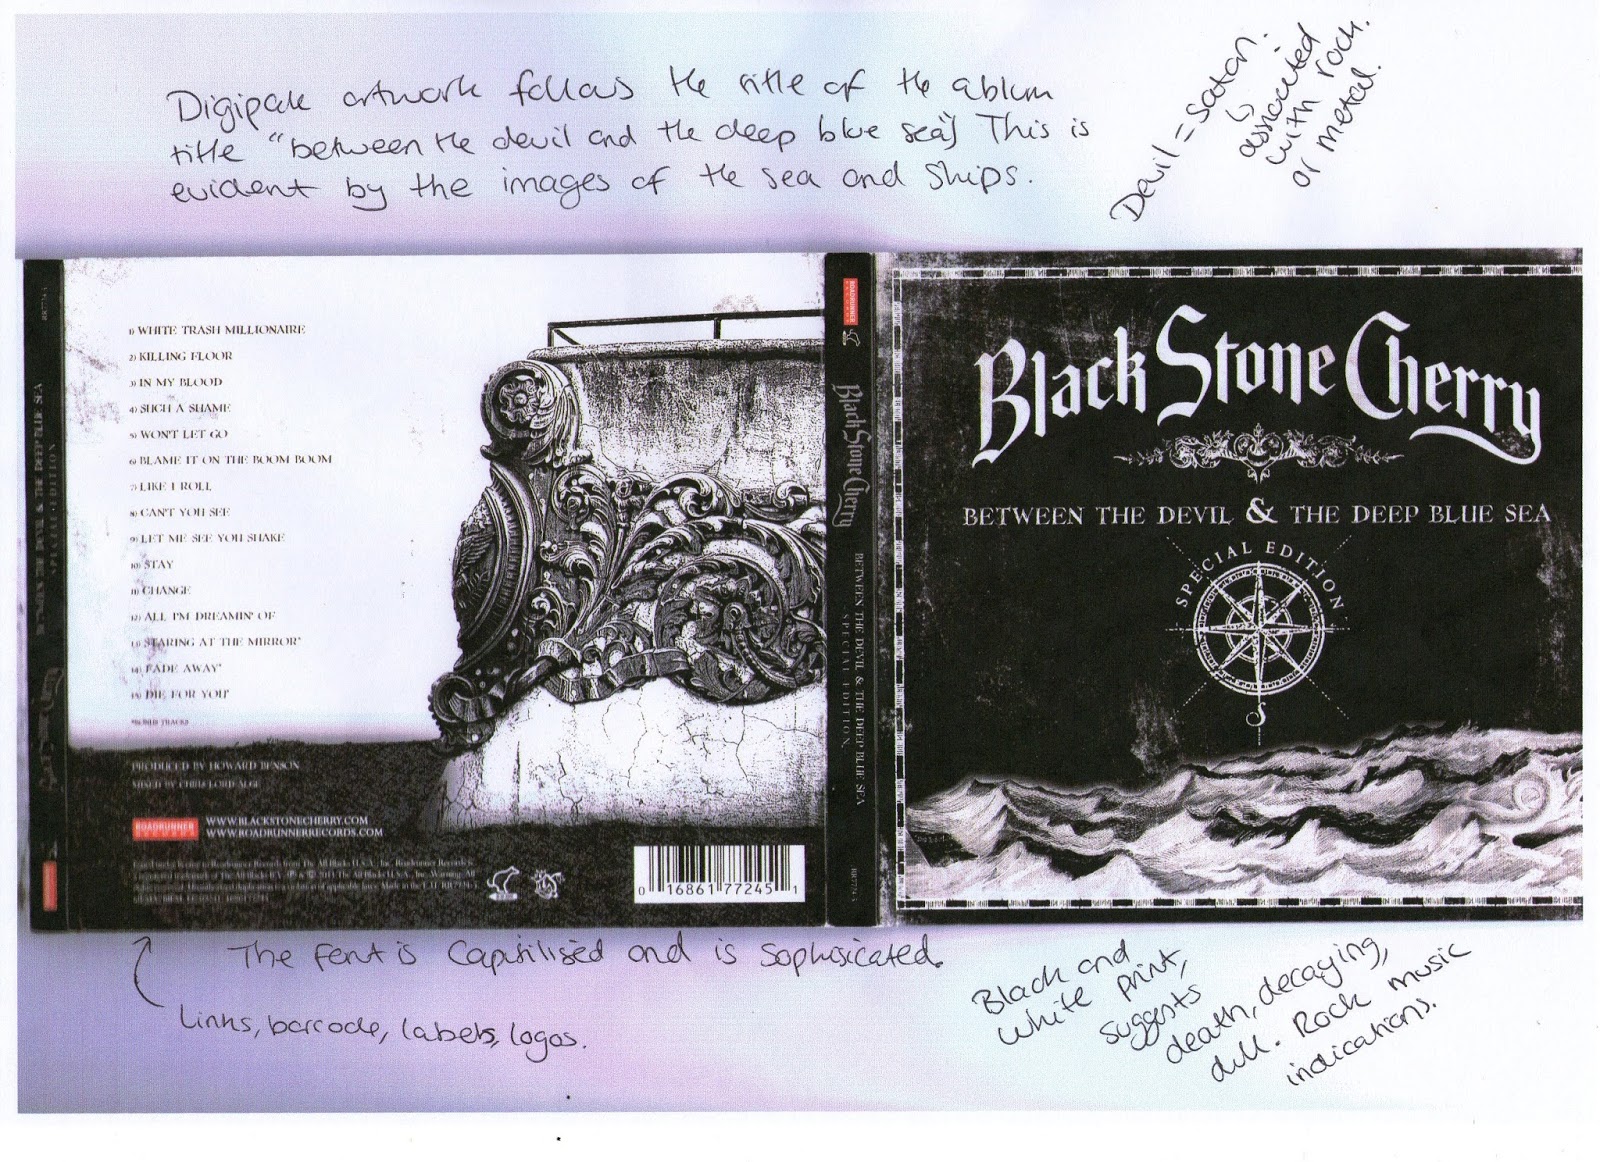 Digipak artwork follows the title of the ablum
title "between the devil and the deep blue sea" This is
evident by the images of the sea and ships.
Devil = Satan.
↳
associated
with rock
or metal.
1) WHITE TRASH MILLIONAIRE
2) KILLING FLOOR
3) IN MY BLOOD
4) SUCH A SHAME
5) WON'T LET GO
6) BLAME IT ON THE BOOM BOOM
7) LIKE I ROLL
8) CAN'T YOU SEE
9) LET ME SEE YOU SHAKE
10) STAY
11) CHANGE
12) ALL I'M DREAMIN' OF
13) STARING AT THE MIRROR*
14) FADE AWAY*
15) DIE FOR YOU*
*BONUS TRACKS
PRODUCED BY HOWARD BENSON
MIXED BY CHRIS LORD-ALGE
ROADRUNNER
RECORDS
WWW.BLACKSTONECHERRY.COM
WWW.ROADRUNNERRECORDS.COM
0 16861 77245 1
ROADRUNNER
RECORDS
Black Stone Cherry
BETWEEN THE DEVIL & THE DEEP BLUE SEA
SPECIAL EDITION
RR7724-5
Black Stone Cherry
BETWEEN THE DEVIL & THE DEEP BLUE SEA
SPECIAL EDITION
S
The font is Capitilised and is Sophisicated.
Links, barcode, labels, logos.
Black and
White print,
suggests
death, decaying,
dull. Rock music
indications.